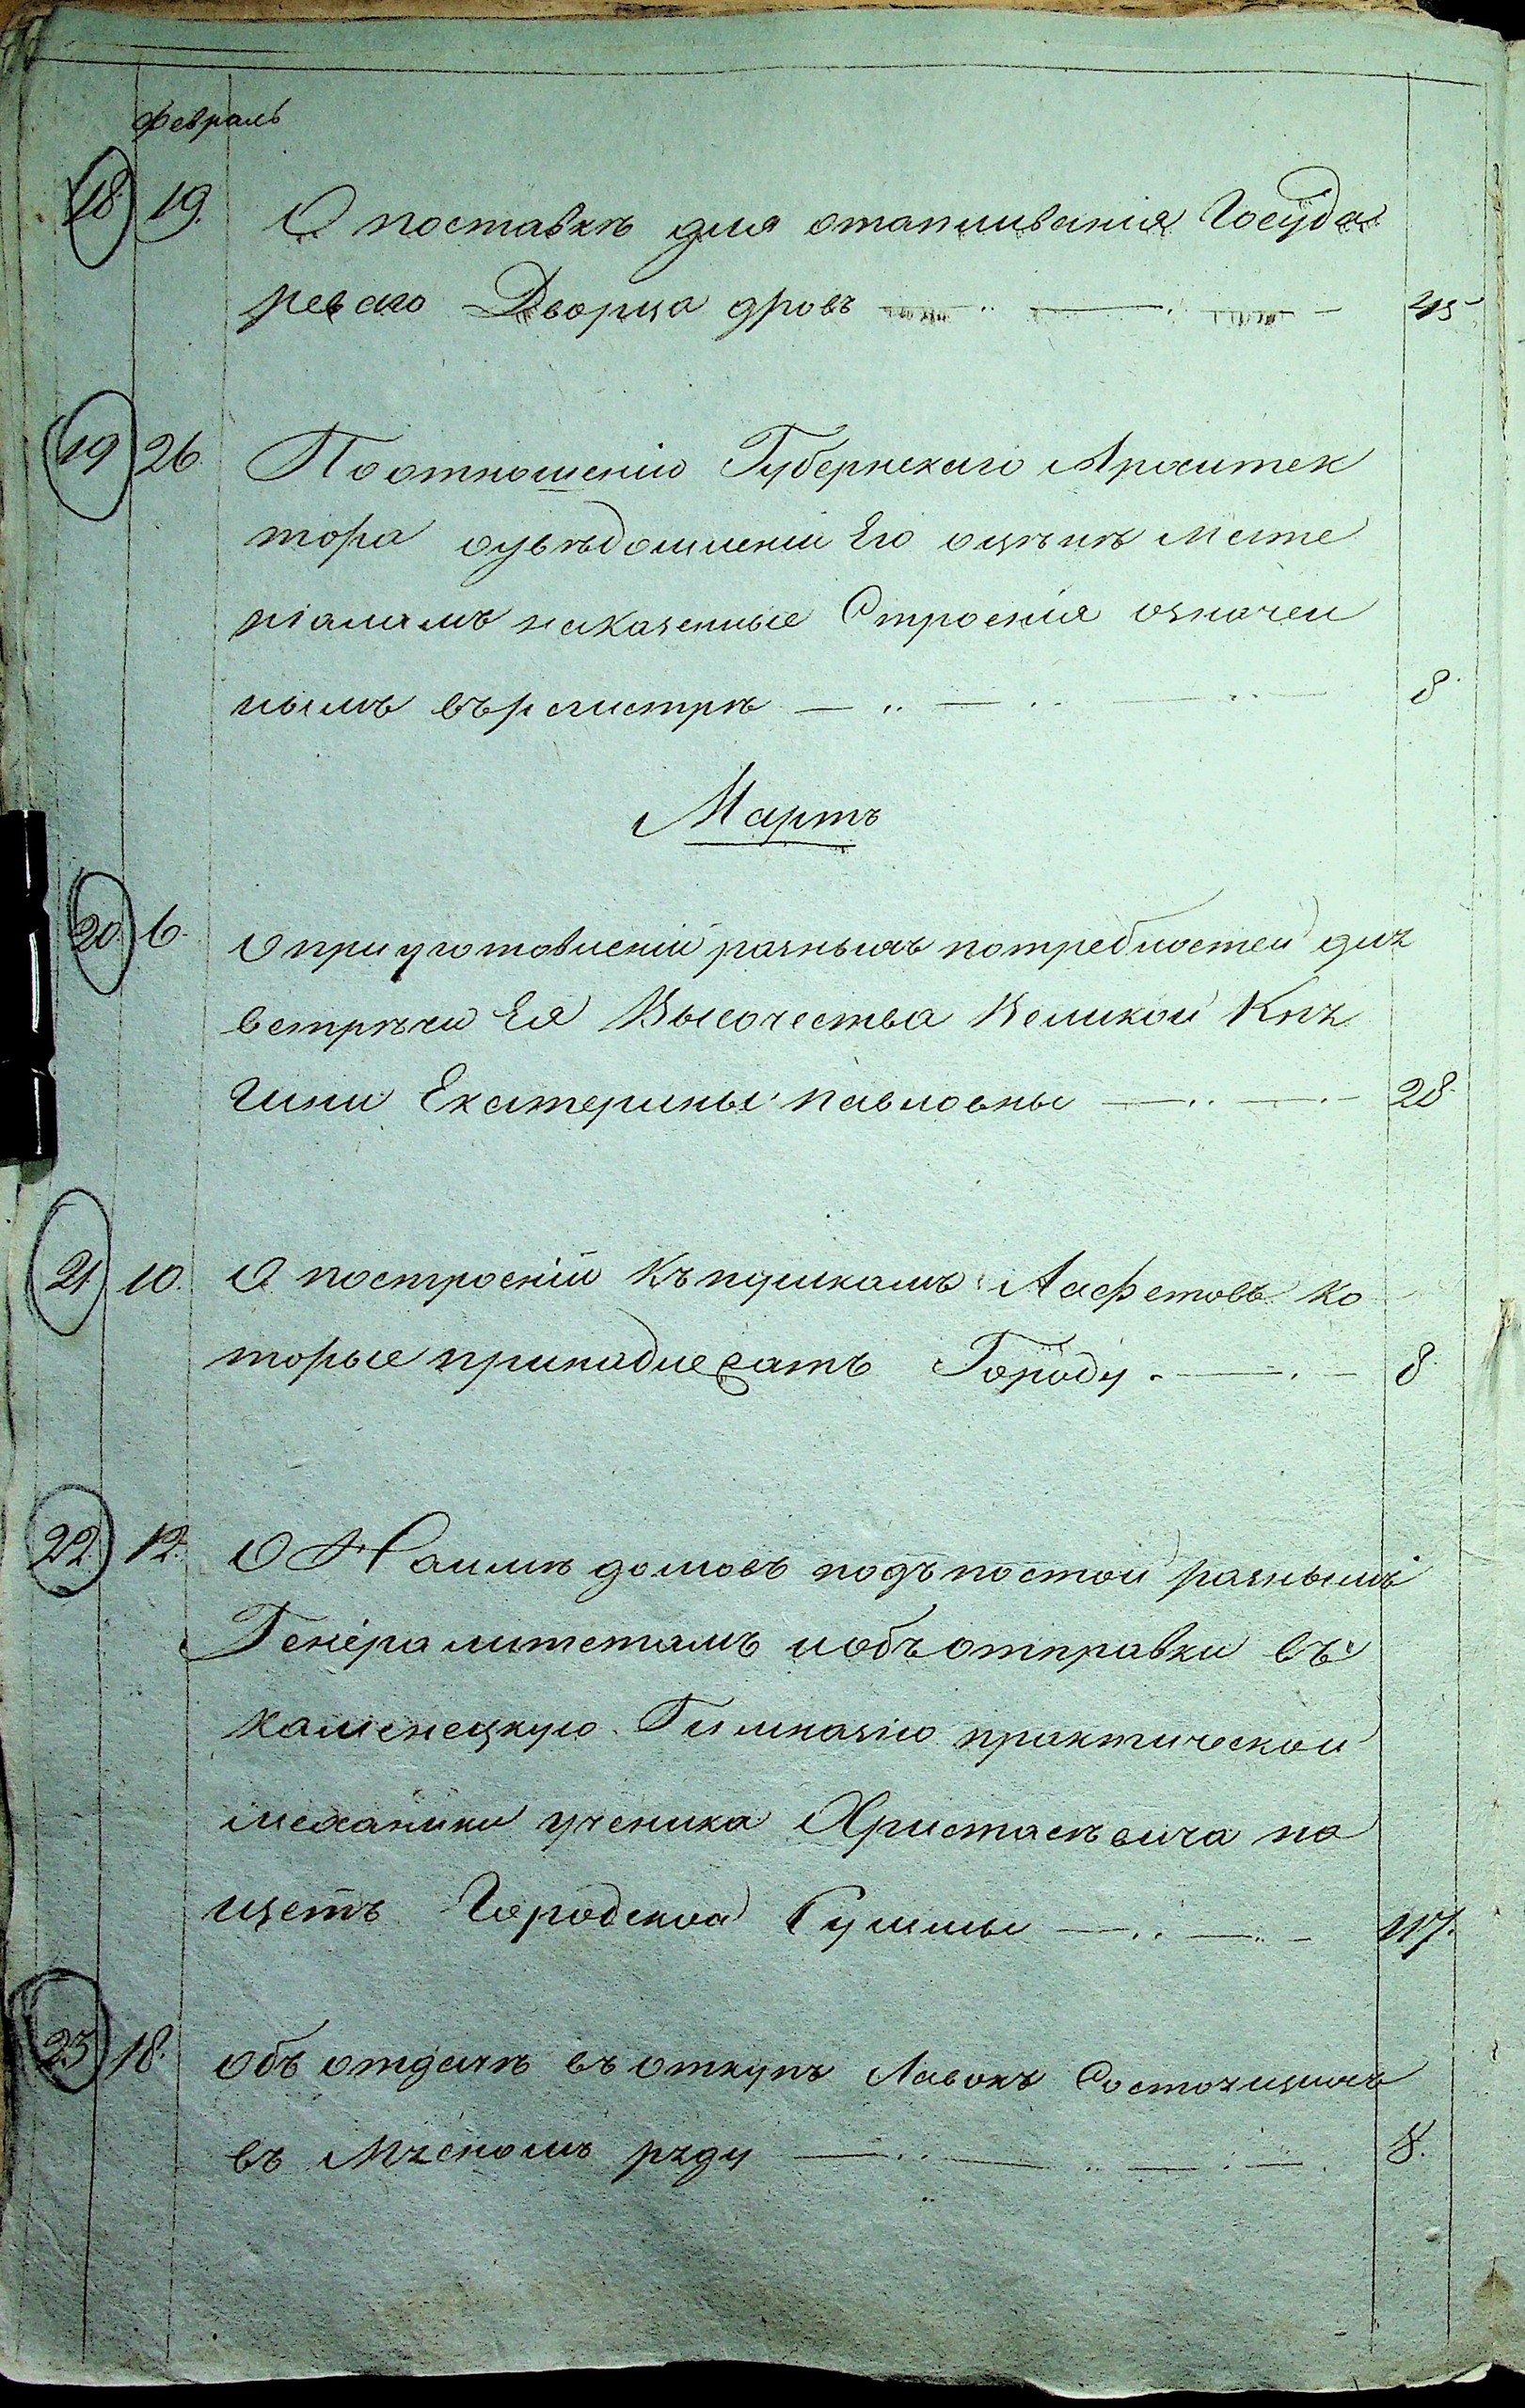 Февраль
18. 19. О поставкѣ для отапливанія Госуда
реваго Дворца дровъ 45
19 26. По отношенію Губернскаго Архитек
тора оувѣдомленіи Его оцѣнкѣ мате
ріаламъ наказенные Строенія означен
нымъ въ регистрѣ 8.
Мартъ
20. 6. О приуготовленіи разныхъ потребностей для
встрѣчи Ея Высочества Великой Кня
гини Екатерины Павловны 28.
21. 10. О построеніи къ пушкамъ Лафетовъ ко
торые принадлежатъ Городу. 8.
22. 12. О Наимѣ домовъ подъ постой разнымъ
Генералитетамъ иобъ отправки въ
каменецкую Гимназію практической
механики ученика Христасѣвича на
щетъ Городской Суммы 117.
23 18. Объ отдачѣ въ откупъ Лавокъ Состоящихъ
въ Мясномъ ряду 8.